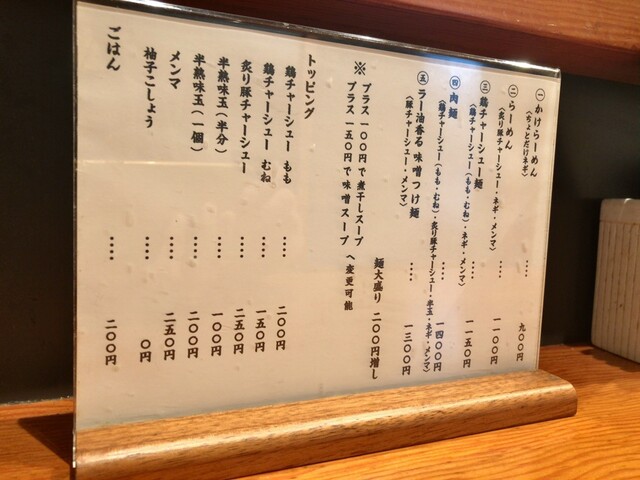 ㊀ かけらーめん 〈ちょとだけネギ〉 ‥‥ 九〇〇円
㊁ らーめん 〈炙り豚チャーシュー・ネギ・メンマ〉 ‥‥ 一一〇〇円
㊂ 鶏チャーシュー麺 〈鶏チャーシュー(もも・むね)・ネギ・メンマ〉 ‥‥ 一一五〇円
㊃ 肉麺 〈鶏チャーシュー(もも・むね)・炙り豚チャーシュー・半玉・ネギ・メンマ〉 ‥‥ 一四〇〇円
㊄ ラー油香る 味噌つけ麺 〈豚チャーシュー・メンマ〉 ‥‥ 一三〇〇円
麺大盛り 二〇〇円増し
※ プラス一〇〇円で煮干しスープ
プラス一五〇円で味噌スープ へ変更可能
トッピング
鶏チャーシュー もも ‥‥ 二〇〇円
鶏チャーシュー むね ‥‥ 一五〇円
炙り豚チャーシュー ‥‥ 二五〇円
半熟味玉(半分) ‥‥ 一〇〇円
半熟味玉(一個) ‥‥ 二〇〇円
メンマ ‥‥ 二五〇円
柚子こしょう ‥‥ 〇円
ごはん ‥‥ 二〇〇円